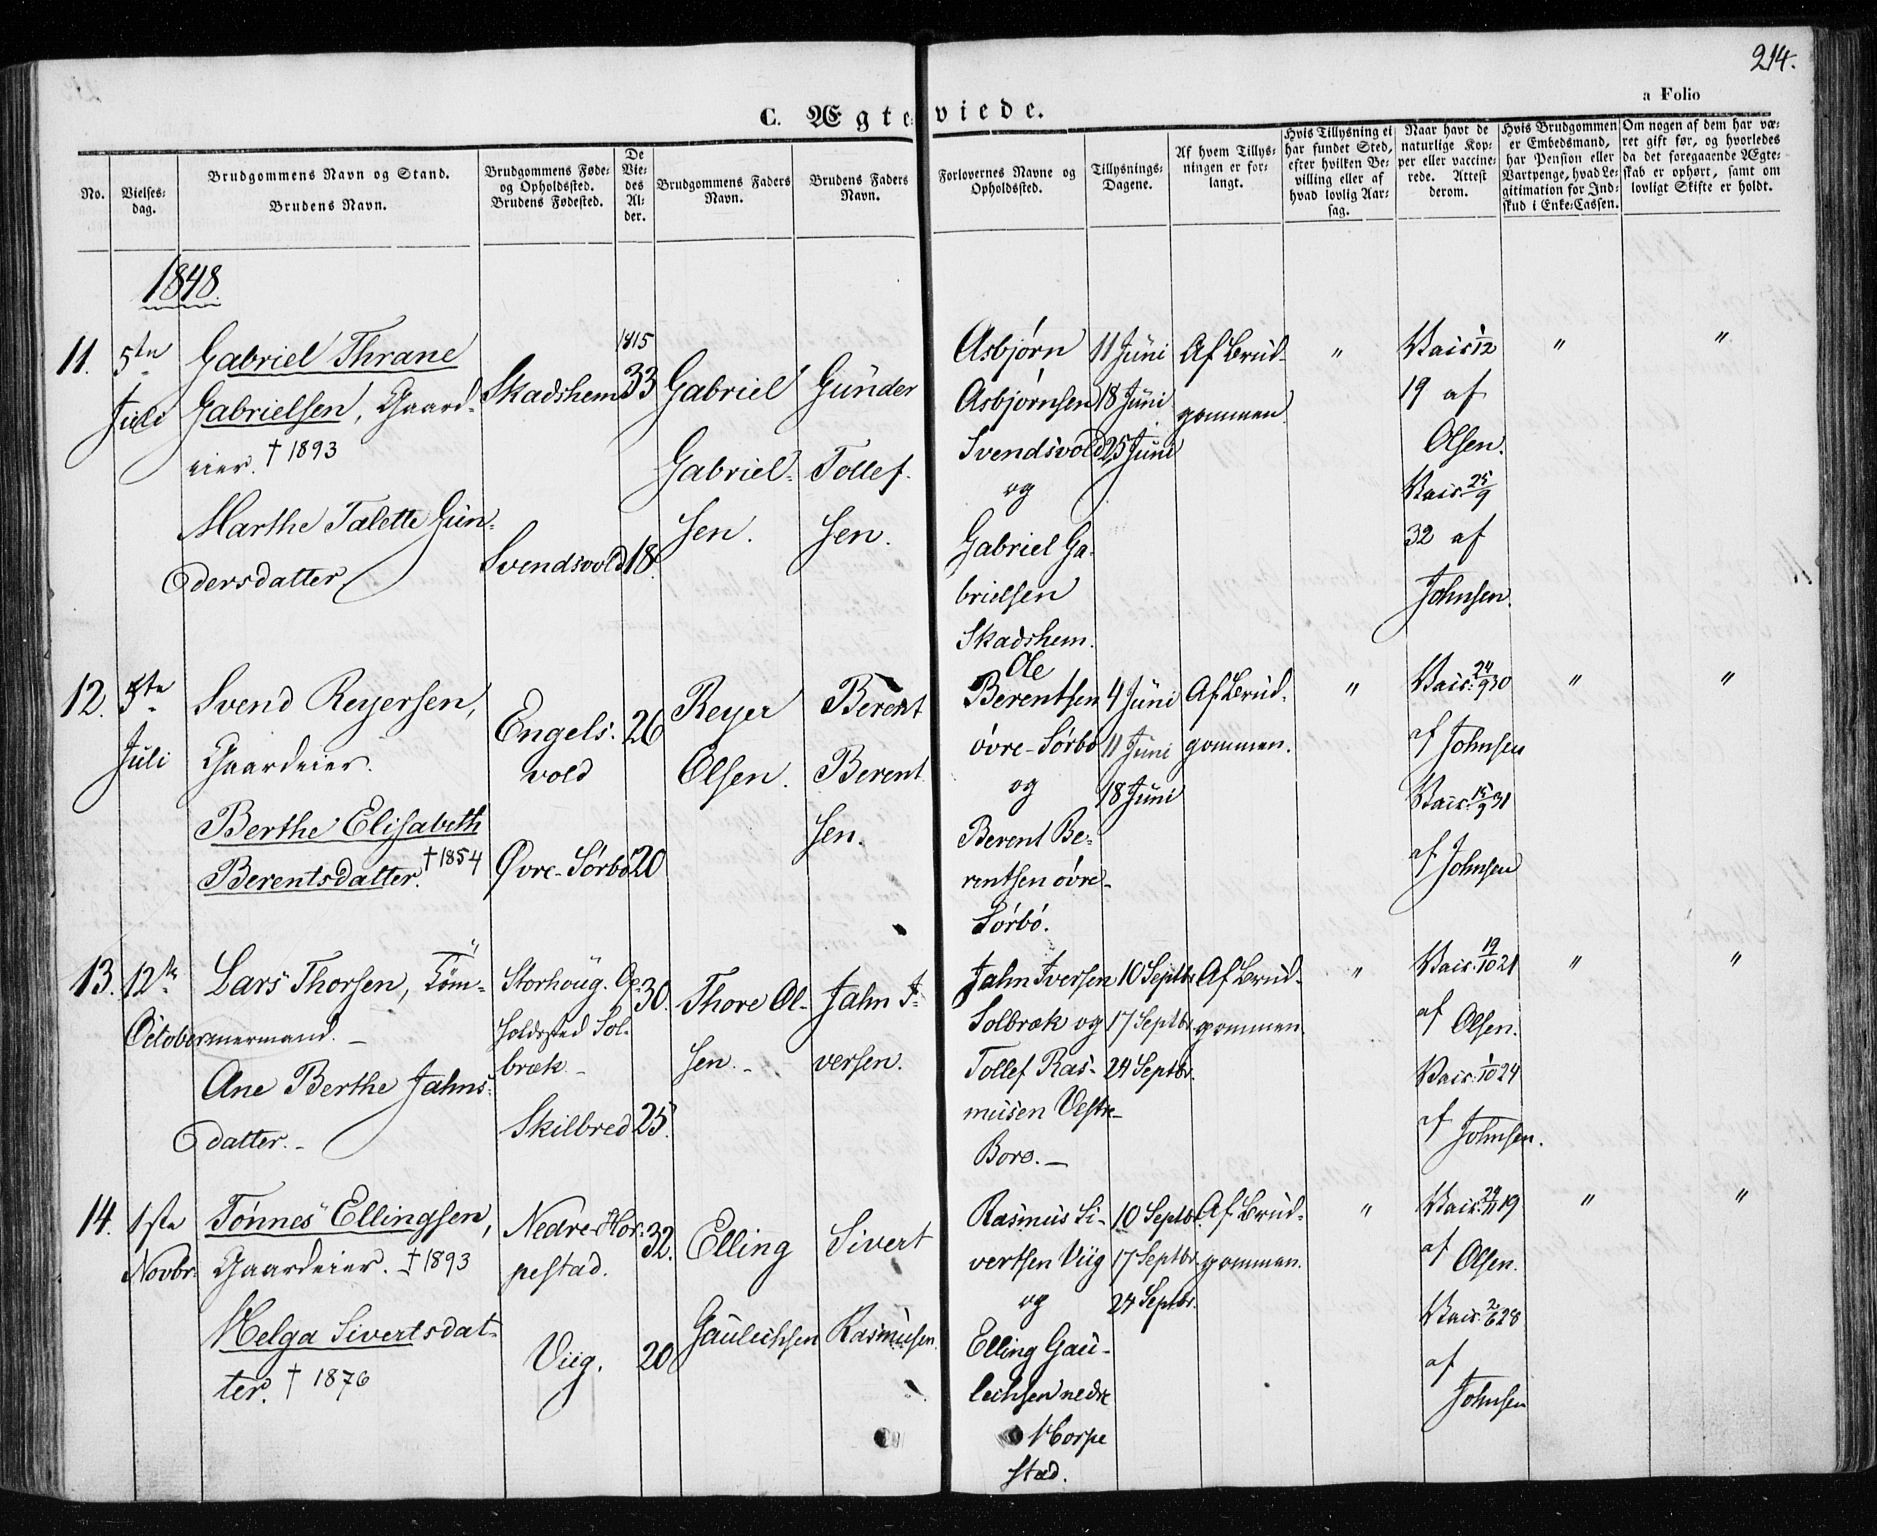 214.
a Folio
C. Ægteviede.
No.
Vielses-
dag.
Brudgommens Navn og Stand.
Brudens Navn.
Brudgommens Føde-
og Opholdssted.
Brudens Fødested.
De
Vie-
des
Al-
der.
Brudgommens Faders
Navn.
Brudens Faders
Navn.
Forlovernes Navne og
Opholdssted.
Tillysnings-
Dagene.
Af hvem Tillys-
ningen er for-
langt.
Hvis Tillysning ei
har fundet Sted,
efter hvilken Be-
villing eller af
hvad lovlig Aar-
sag.
Naar havt de
naturlige Kop-
per eller vaccine-
rede. Attest
derom.
Hvis Brudgommen
er Embedsmand,
har Pension eller
Vartpenge, hvad Le-
gitimation for Ind-
skud i Enke-Cassen.
Om nogen af dem har væ-
ret gift før, og hvorledes
da det foregaaende Ægte-
skab er ophørt, samt om
lovligt Skifte er holdt.
1848.
11.
5te
Juli
Gabriel Thrane
Gabrielsen, Gaard-
eier. † 1893
Marthe Talette Gun-
dersdatter
Skadshem
Svendsvold
1815
33
18.
Gabriel
Gabriel-
sen.
Gunder
Tollef-
sen.
Asbjørn
Asbjørnsen
Svendsvold
og
Gabriel Ga-
brielsen
Skadshem.
11 Juni
18 Juni
25 Juni
Af Brud-
gommen.
"
Vacc. 1/12
19 af
Olsen.
Vacc. 25/9
32 af
Johnsen.
"
"
12.
5te
Juli
Svend Reyersen,
Gaardeier.
Berthe Elisabeth
Berentsdatter. † 1854
Engels-
vold
Øvre-Sørbø
26
20
Reyer
Olsen.
Berent
Berent
sen.
Ole
Berentsen
øvre-Sørbø
og
Berent Be-
rentsen øvre-
Sørbø.
4 Juni
11 Juni
18 Juni
Af Brud-
gommen.
"
Vacc. 24/9 30
af Johnsen
Vacc. 15/9 31
af Johnsen
"
"
13.
12te
October
Lars Thorsen, Tøm-
mermand. –
Ane Berthe Jahns-
datter. –
Storhoug. Op-
holdssted Sol-
bræk –
Skilbred
30.
25.
Thore Ol-
sen. –
Jahn I-
versen.
Jahn Iversen
Solbræk og
Tollef Ras-
musen Vestre-
Bore. –
10 Septbr
17 Septbr
24 Septbr.
Af Brud-
gommen.
"
Vacc. 19/10 21
af Olsen.
Vacc. 1/10 24
af Johnsen.
"
"
14.
1ste
Novbr.
Tønnes Ellingsen,
Gaardeier. † 1893
Helga Sivertsdat-
ter. † 1876
Nedre-Hor-
pestad.
Viig.
32.
20
Elling
Gaulichsen
Sivert
Rasmusen.
Rasmus Si-
vertsen Viig
og
Elling Gau-
lichsen nedre
Horpe
stad.
10 Septbr.
17 Septbr.
24 Septbr.
Af Brud-
gommen.
"
Olsen.
Vacc. 2/6 28
af
Johnsen
"
"